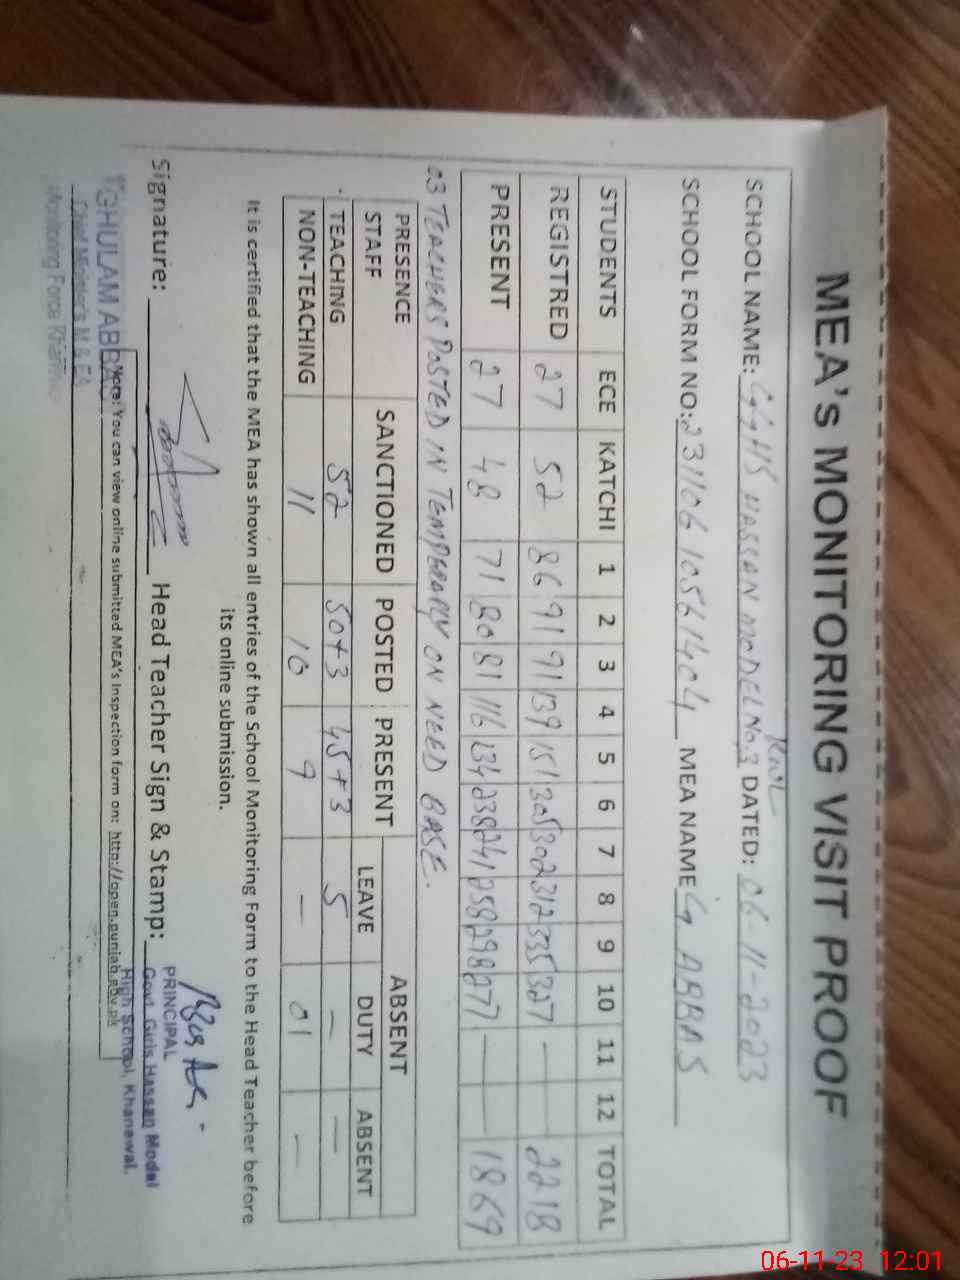 MEA's MONITORING VISIT PROOF
SCHOOL NAME: GGHS HASSAN MODEL No.3 KWL DATED: 06-11-2023
SCHOOL FORM NO: 231106 1056 1404 MEA NAME G ABBAS
STUDENTS ECE KATCHI 1 2 3 4 5 6 7 8 9 10 11 12 TOTAL
REGISTRED 27 52 86 91 91 139 151 305 302 312 335 327 — — 2218
PRESENT 27 48 71 80 81 116 134 238 241 258 298 277 — — 1869
03 TEACHERS POSTED IN TEMPERARY ON NEED BASE.
PRESENCE STAFF SANCTIONED POSTED PRESENT ABSENT
LEAVE DUTY ABSENT
TEACHING 52 50+3 45+3 5 — —
NON-TEACHING 11 10 9 — 01 —
It is certified that the MEA has shown all entries of the School Monitoring Form to the Head Teacher before
its online submission.
Signature: Head Teacher Sign & Stamp:
PRINCIPAL
Govt. Girls Hassan Model
High School, Khanewal.
GHULAM ABBAS
Chief Minister's M & EA
Monitoring Force Khanewal
Note: You can view online submitted MEA's Inspection form on: http://open.punjab.gov.pk
06-11-23 12:01